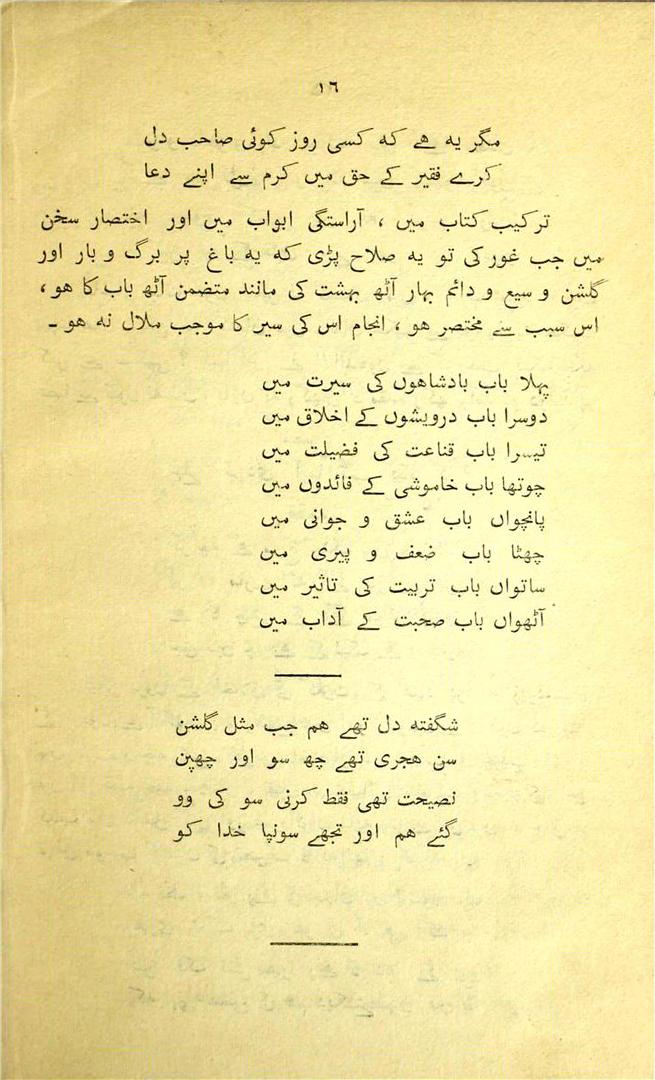 ١٦
مگر یہ ہے کہ کسی روز کوئی صاحب دل
کرے فقیر کے حق میں کرم سے اپنے دعا
ترکیب کتاب میں ، آراستگی ابواب میں اور اختصار سخن
میں جب غور کی تو یہ صلاح پڑی کہ یہ باغ پر برگ و بار اور
گلشن و سیع و دائم بہار آٹھ بہشت کی مانند متضمن آٹھ باب کا ہو ،
اس سبب سے مختصر ہو ، انجام اس کی سیر کا موجب ملال نہ ہو ۔
پہلا باب بادشاہوں کی سیرت میں
دوسرا باب درویشوں کے اخلاق میں
تیسرا باب قناعت کی فضیلت میں
چوتھا باب خاموشی کے فائدوں میں
پانچواں باب عشق و جوانی میں
چھٹا باب ضعف و پیری میں
ساتواں باب تربیت کی تاثیر میں
آٹھواں باب صحبت کے آداب میں
شگفتہ دل تھے ہم جب مثل گلشن
سن ہجری تھے چھ سو اور چھپن
نصیحت تھی فقط کرنی سو کی وو
گئے ہم اور تجھے سونپا خدا کو